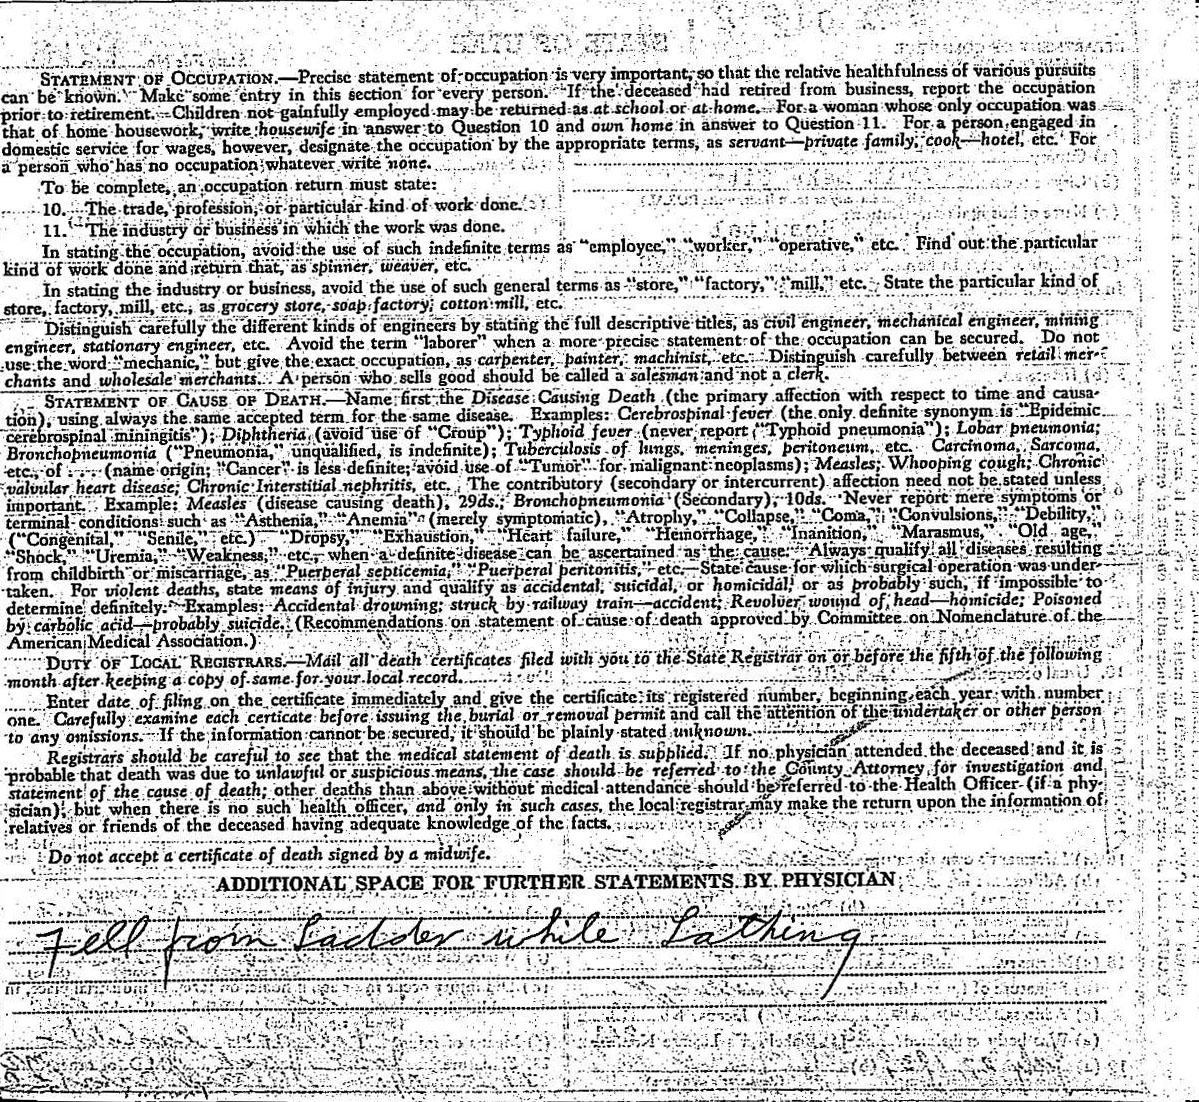 STATEMENT OF OCCUPATION.—Precise statement of occupation is very important, so that the relative healthfulness of various pursuits
can be known. Make some entry in this section for every person. If the deceased had retired from business, report the occupation
prior to retirement. Children not gainfully employed may be returned as at school or at home. For a woman whose only occupation was
that of home housework, write housewife in answer to Question 10 and own home in answer to Question 11. For a person engaged in
domestic service for wages, however, designate the occupation by the appropriate terms, as servant—private family; cook—hotel, etc. For
a person who has no occupation whatever write none.
To be complete, an occupation return must state:
10. The trade, profession, or particular kind of work done.
11. The industry or business in which the work was done.
In stating the occupation, avoid the use of such indefinite terms as "employee," "worker," "operative," etc. Find out the particular
kind of work done and return that, as spinner, weaver, etc.
In stating the industry or business, avoid the use of such general terms as "store," "factory," "mill," etc. State the particular kind of
store, factory, mill, etc., as grocery store, soap factory, cotton mill, etc.
Distinguish carefully the different kinds of engineers by stating the full descriptive titles, as civil engineer, mechanical engineer, mining
engineer, stationary engineer, etc. Avoid the term "laborer" when a more precise statement of the occupation can be secured. Do not
use the word "mechanic," but give the exact occupation, as carpenter, painter, machinist, etc. Distinguish carefully between retail mer-
chants and wholesale merchants. A person who sells good should be called a salesman and not a clerk.
STATEMENT OF CAUSE OF DEATH.—Name first the Disease Causing Death (the primary affection with respect to time and causa-
tion), using always the same accepted term for the same disease. Examples: Cerebrospinal fever (the only definite synonym is "Epidemic
cerebrospinal miningitis"); Diphtheria (avoid use of "Croup"); Typhoid fever (never report "Typhoid pneumonia"); Lobar pneumonia;
Bronchopneumonia ("Pneumonia," unqualified, is indefinite); Tuberculosis of lungs, meninges, peritoneum, etc. Carcinoma, Sarcoma,
etc., of .... (name origin; "Cancer" is less definite; avoid use of "Tumor" for malignant neoplasms); Measles; Whooping cough; Chronic
valvular heart disease; Chronic Interstitial nephritis, etc. The contributory (secondary or intercurrent) affection need not be stated unless
important. Example: Measles (disease causing death), 29ds.; Bronchopneumonia (Secondary), 10ds. Never report mere symptoms or
terminal conditions such as "Asthenia," "Anemia" (merely symptomatic), "Atrophy," "Collapse," "Coma," "Convulsions," "Debility,"
("Congenital," "Senile," etc.) "Dropsy," "Exhaustion," "Heart failure," "Hemorrhage," "Inanition," "Marasmus," "Old age,"
"Shock," "Uremia," "Weakness," etc., when a definite disease can be ascertained as the cause. Always qualify all diseases resulting
from childbirth or miscarriage, as "Puerperal septicemia," "Puerperal peritonitis," etc. State cause for which surgical operation was under-
taken. For violent deaths, state means of injury and qualify as accidental, suicidal, or homicidal, or as probably such, if impossible to
determine definitely. Examples: Accidental drowning; struck by railway train—accident; Revolver wound of head—homicide; Poisoned
by carbolic acid—probably suicide. (Recommendations on statement of cause of death approved by Committee on Nomenclature of the
American Medical Association.)
DUTY OF LOCAL REGISTRARS.—Mail all death certificates filed with you to the State Registrar on or before the fifth of the following
month after keeping a copy of same for your local record.
Enter date of filing on the certificate immediately and give the certificate its registered number, beginning each year with number
one. Carefully examine each certicate before issuing the burial or removal permit and call the attention of the undertaker or other person
to any omissions. If the information cannot be secured, it should be plainly stated unknown.
Registrars should be careful to see that the medical statement of death is supplied. If no physician attended the deceased and it is
probable that death was due to unlawful or suspicious means, the case should be referred to the County Attorney for investigation and
statement of the cause of death; other deaths than above without medical attendance should be referred to the Health Officer (if a phy-
sician); but when there is no such health officer, and only in such cases, the local registrar may make the return upon the information of
relatives or friends of the deceased having adequate knowledge of the facts.
Do not accept a certificate of death signed by a midwife.
ADDITIONAL SPACE FOR FURTHER STATEMENTS BY PHYSICIAN
Fell from Ladder while Lathing